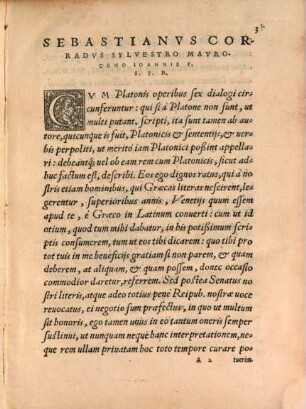 3
SEBASTIANVS COR-
RADVS SYLVESTRO MAVRO-
CENO IOANNIS F.
S. P. D.
CVM Platonis operibus sex dialogi cir
cunferuntur: qui si à Platone non sunt, ut
multi putant, scripti, ita sunt tamen ab au
tore, quicunque is fuit, Platonicis & sententijs, & uer
bis perpoliti, ut merito iam Platonici poßint appella-
ri: debeantq́; uel ob eam rem cum Platonicis, sicut ad-
huc factum est, describi. Eos ego dignos ratus, qui à no
stris etiam hominibus, qui Græcas literas nescirent, le-
gerentur, superioribus annis, Venetijs quum essem
apud te, è Græco in Latinum conuerti: cum ut id
otium, quod tum mihi dabatur, in his potißimum scri-
ptis consumerem, tum ut eos tibi dicarem: quo tibi pro
tot tuis in me beneficijs gratiam si non parem, & quam
deberem, at aliquam, & quam possem, donec occasio
commodior daretur, referrem. Sed postea Senatus no
stri literis, atque adeo totius penè Reipub. nostræ uoce
reuocatus, ei negotio sum præfectus, in quo ut multum
sit honoris, ego tamen unus in eo tantum oneris semper
sustinui, ut nunquam neque hanc interpretationem, ne-
que rem ullam priuatam hoc toto tempore curare po-
A 2 tuerim.